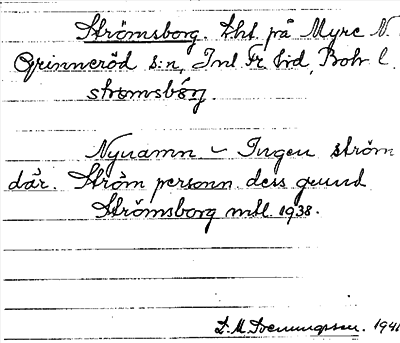 Strömsborg. Lht. på Myre N.
Grinneröd s:n, Inl Fr hd, Boh l.
strömsbörj.
Nynamn – Ingen ström
där. Ström personn. dess grund
Strömsborg mtl. 1938.
1941